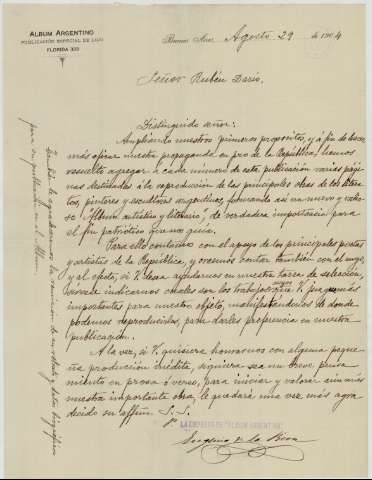 ALBUM ARGENTINO
PUBLICACIÓN ESPECIAL DE LUJO
FLORIDA 320
Buenos Aires, Agosto 29 de 1904
Señor Rubén Darío.
Distinguido señor:
Ampliando nuestros primeros propósitos, y á fin de hacer
más eficaz nuestra propaganda en pro de la República, hemos
resuelto agregar á cada número de esta publicación varias pági-
nas destinadas á la reproducción de las principales obras de los litera-
tos, pintores y escultores argentinos, formando así un nuevo y valio-
so "Album artístico y literario", de verdadera importancia para
el fin patriótico que nos guía.
Para ello contamos con el apoyo de los principales poetas
y artistas de la República, y creemos contar también con el suyo,
y al efecto, si V. desea ayudarnos en nuestra tarea de selección,
sírvase indicarnos cuales son los trabajos suyos que V. juzga más
importantes para nuestro objeto, manifestándonos de donde
podemos reproducirlos, para darles preferencia en nuestra
publicación.
A la vez, si V. quisiera honrarnos con alguna peque-
ña producción inédita, siquiera sea un breve pensa-
miento en prosa ó verso, para iniciar y valorar aun más
nuestra importante obra, le quedará una vez más agra-
decido su affmo. S. S.
p. LA EMPRESA DE "ALBUM ARGENTINO"
Eugenio de la
También le agradeceremos la remisión de su retrato y datos biográficos
para su publicación en el Album.